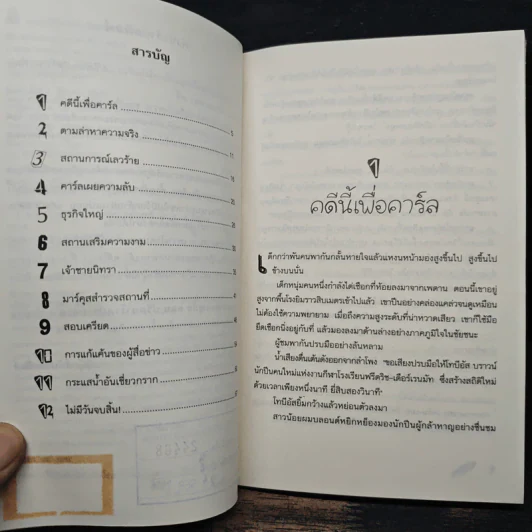 สารบัญ
1 คดีนี้เพื่อคาร์ล
2 ตามล่าหาความจริง
3 สถานการณ์เลวร้าย
4 คาร์ลเผยความลับ
5 ธุรกิจใหญ่
6 สถานเสริมความงาม
7 เจ้าชายนิทรา
8 มาร์คุสสำรวจสถานที่
9 สอบเครียด
10 การแก้แค้นของผู้สื่อข่าว
11 กระแสน้ำอันเชี่ยวกราก
12 ไม่มีวันจบสิ้น!
1
คดีนี้เพื่อคาร์ล
เด็กกว่าพันคนพากันกลั้นหายใจแล้วแหงนหน้ามองสูงขึ้นไป สูงขึ้นไป
ข้างบนนั้น
เด็กหนุ่มคนหนึ่งกำลังไต่เชือกที่ห้อยลงมาจากเพดาน ตอนนี้เขาอยู่
สูงจากพื้นโรงยิมราวสิบเมตรเข้าไปแล้ว เขาปีนอย่างคล่องแคล่วจนดูเหมือน
ไม่ต้องใช้ความพยายาม เมื่อถึงความสูงระดับที่น่าหวาดเสียว เขาก็ใช้มือ
ยึดเชือกนิ่งอยู่กับที่ แล้วมองลงมาด้านล่างอย่างภาคภูมิใจในชัยชนะ
ผู้ชมพากันปรบมืออย่างล้นหลาม
น้ำเสียงตื่นเต้นดังออกจากลำโพง "ขอเสียงปรบมือให้โทบีอัส บราวน์
นักปีนคนใหม่แห่งงานกีฬาโรงเรียนฟรีดริช-เดือร์เรนมัท ซึ่งสร้างสถิติใหม่
ด้วยเวลาเพียงหนึ่งนาที ยี่สิบสองวินาที"
โทบีอัสยิ้มกว้างแล้วหย่อนตัวลงมา
สาวน้อยผมบลอนด์หยิกหย็องมองนักปีนผู้กล้าหาญอย่างชื่นชม